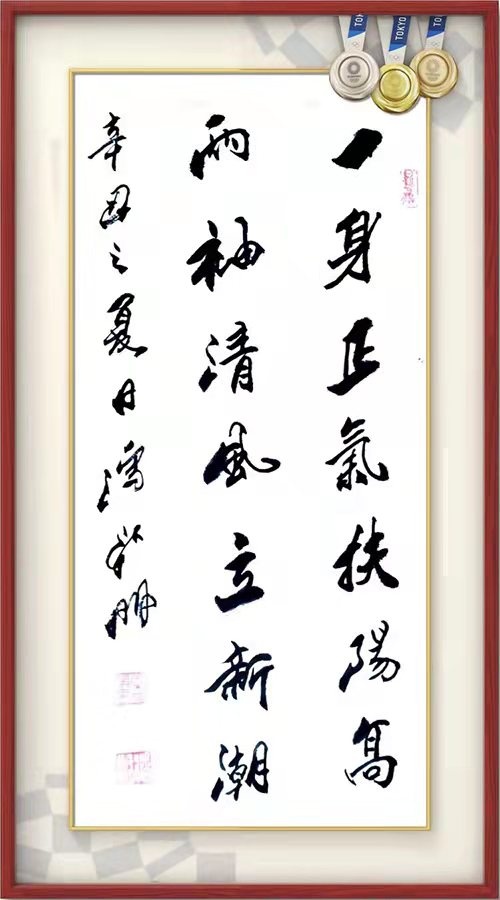 一身正氣扶陽高
兩袖清風立新潮
辛丑之夏日
TOKYO
TOKYO